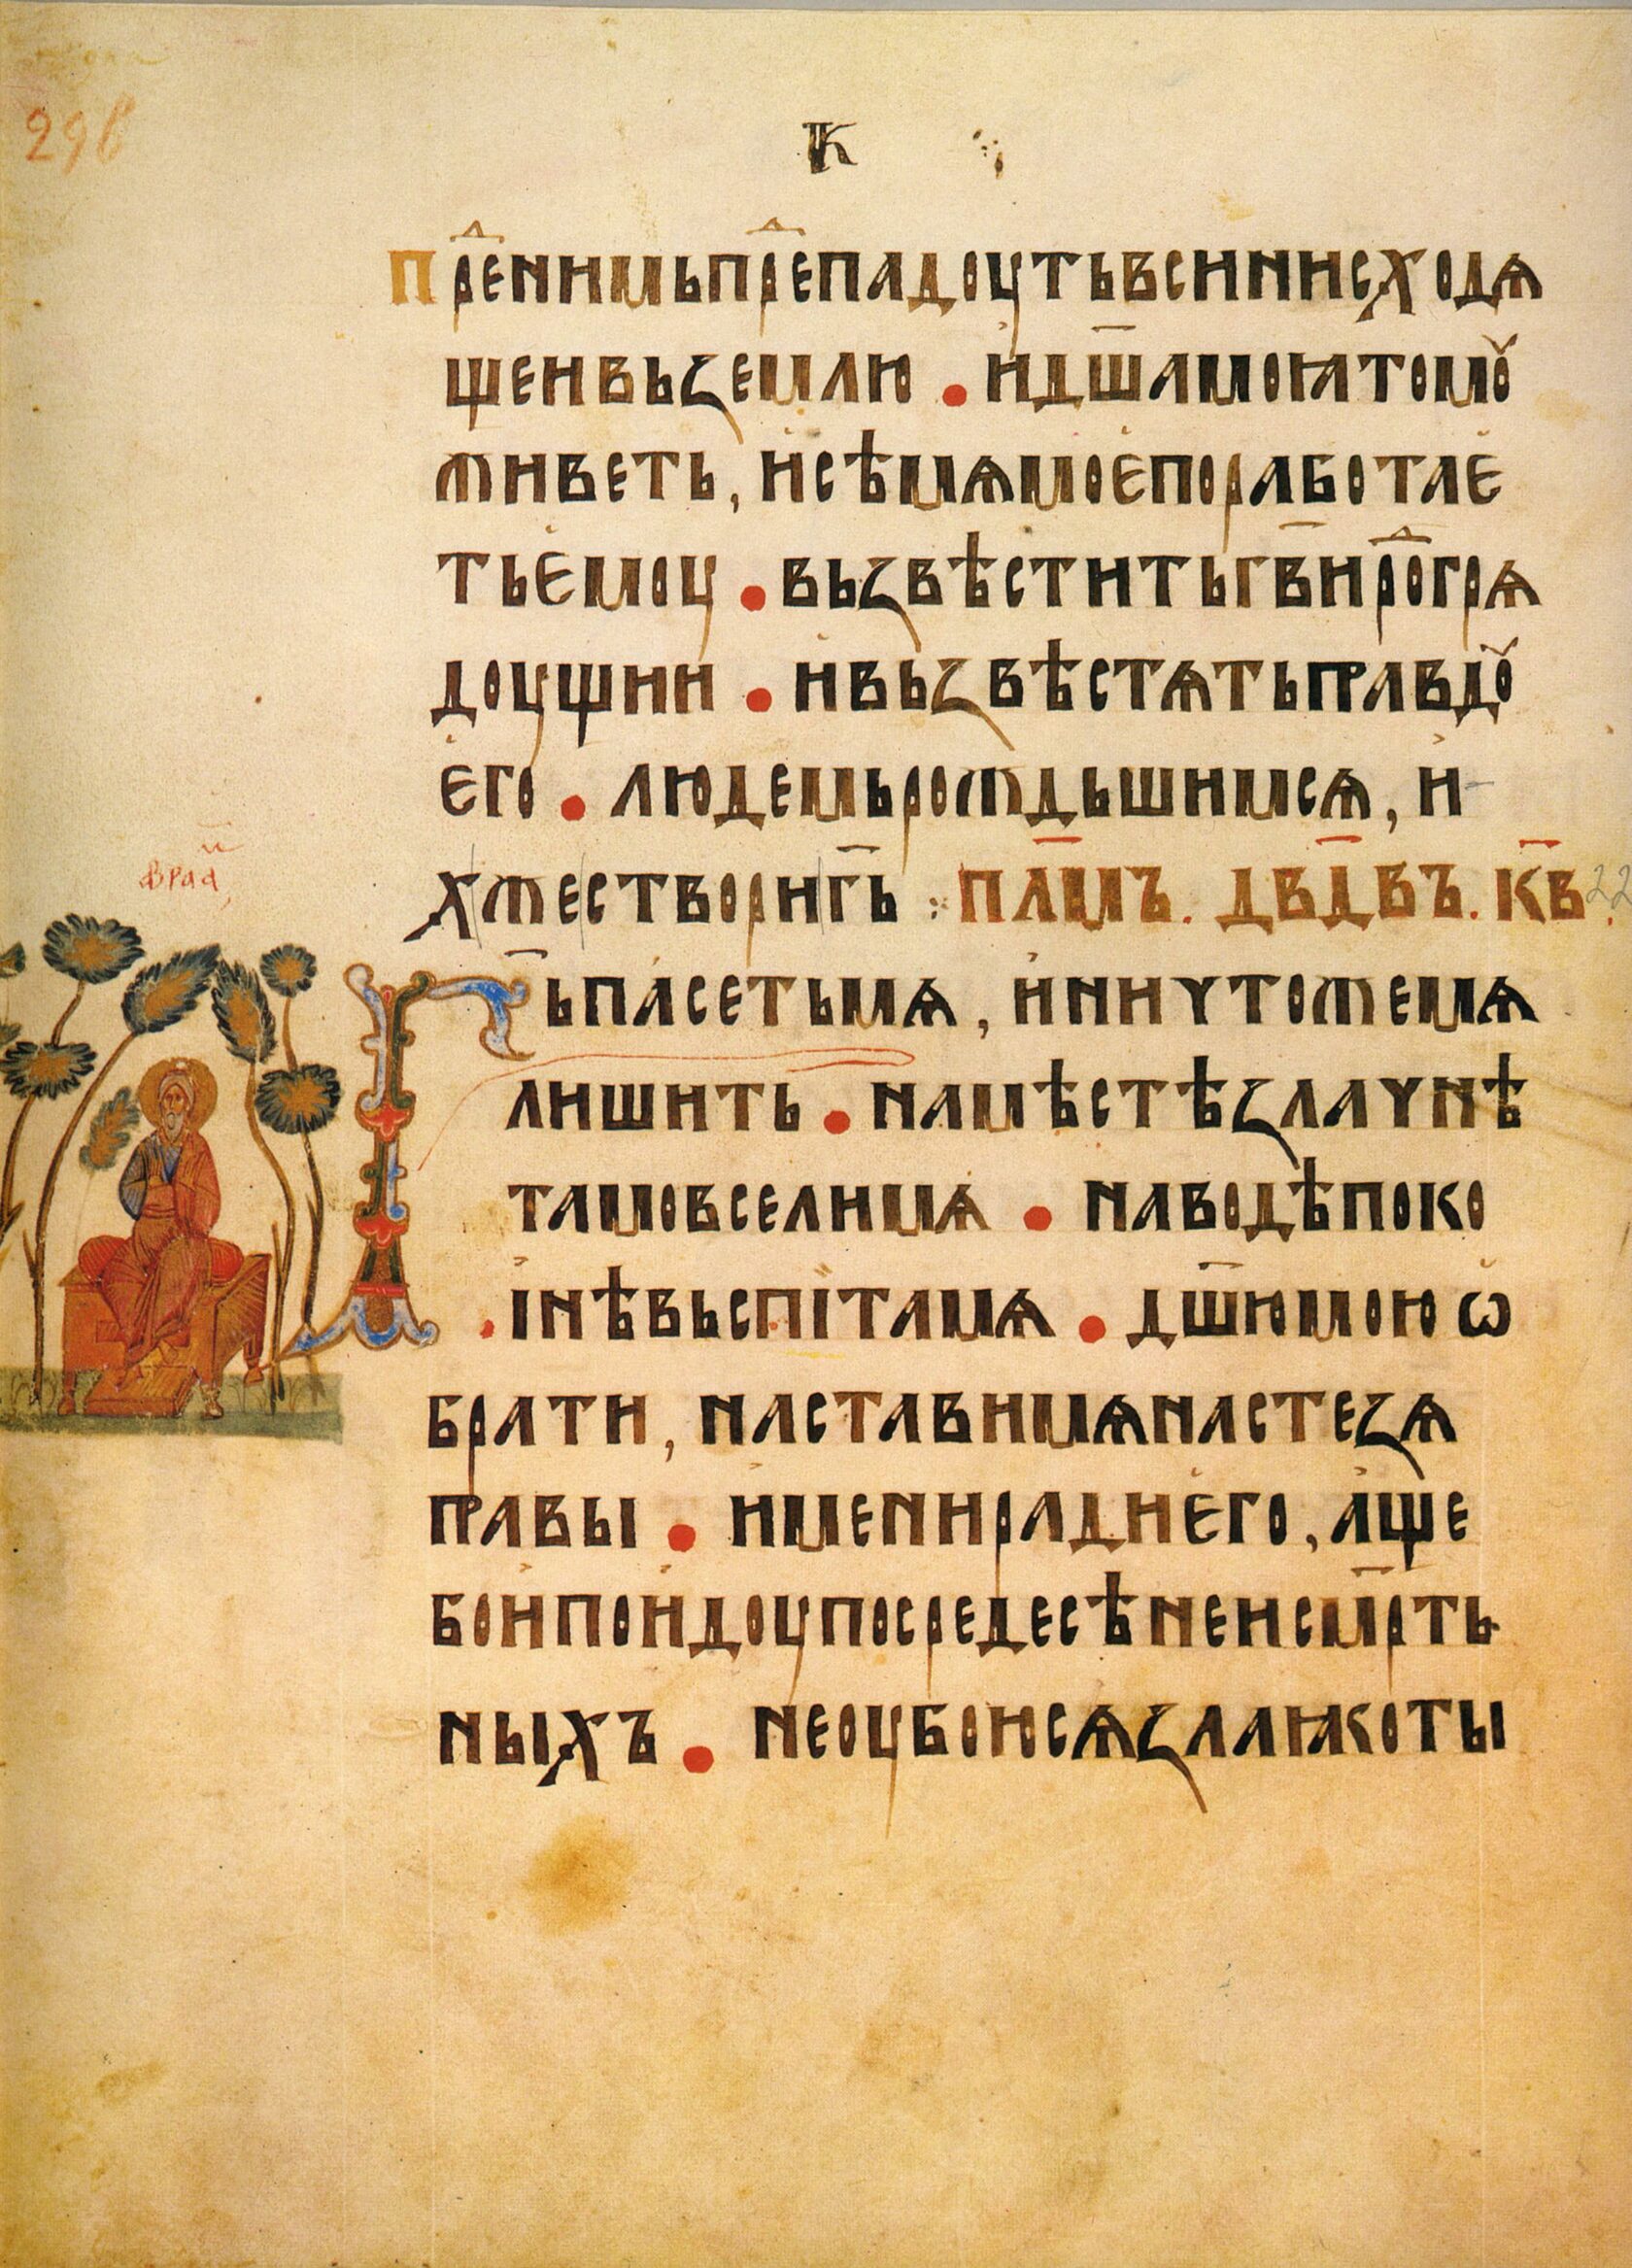 29б
К
Пре҇ⷣнимьпре҇ⷣпадоуть всинисходѧ
щеивьꙁемлю • идш҃амоꙗтомꙋ
живеть, исѣмѧмоепоработае
тьемоу • вьꙁвѣститьгв҃иро҇ⷣгрѧ
доущии • ивьꙁвѣстѧтьправдꙋ
его • людемьрождьшимсѧ, и
хжестворигь҃ : пл҃мъ. дв҃двъ. к҃в 22
аврааⷨ
Гь҃пасетьмѧ, иничтожемѧ
лишить • намѣстѣꙁлачнѣ
тамовселимѧ • наводѣпоко
інѣвьспітамѧ • дш҃юмоюѡ
брати, наставимѧнастеꙁѧ
правы • имениради его, аще
боипоидоупосредесѣнеисм҃рть
ныхъ • неоубоюсѧꙁлаꙗкоты